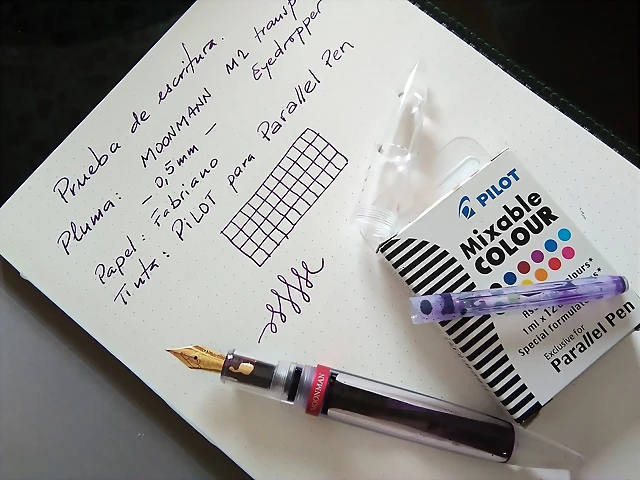 Prueba de escritura.
Pluma: MOONMANN M2 transp
Eyedropper
- 0,5mm -
Papel: Fabriano
Tinta: PILOT para Parallel Pen
PILOT
Mixable
COLOUR
colours*
1ml x 12
Special formulated
Exclusive for
Parallel Pen
MOONMAN